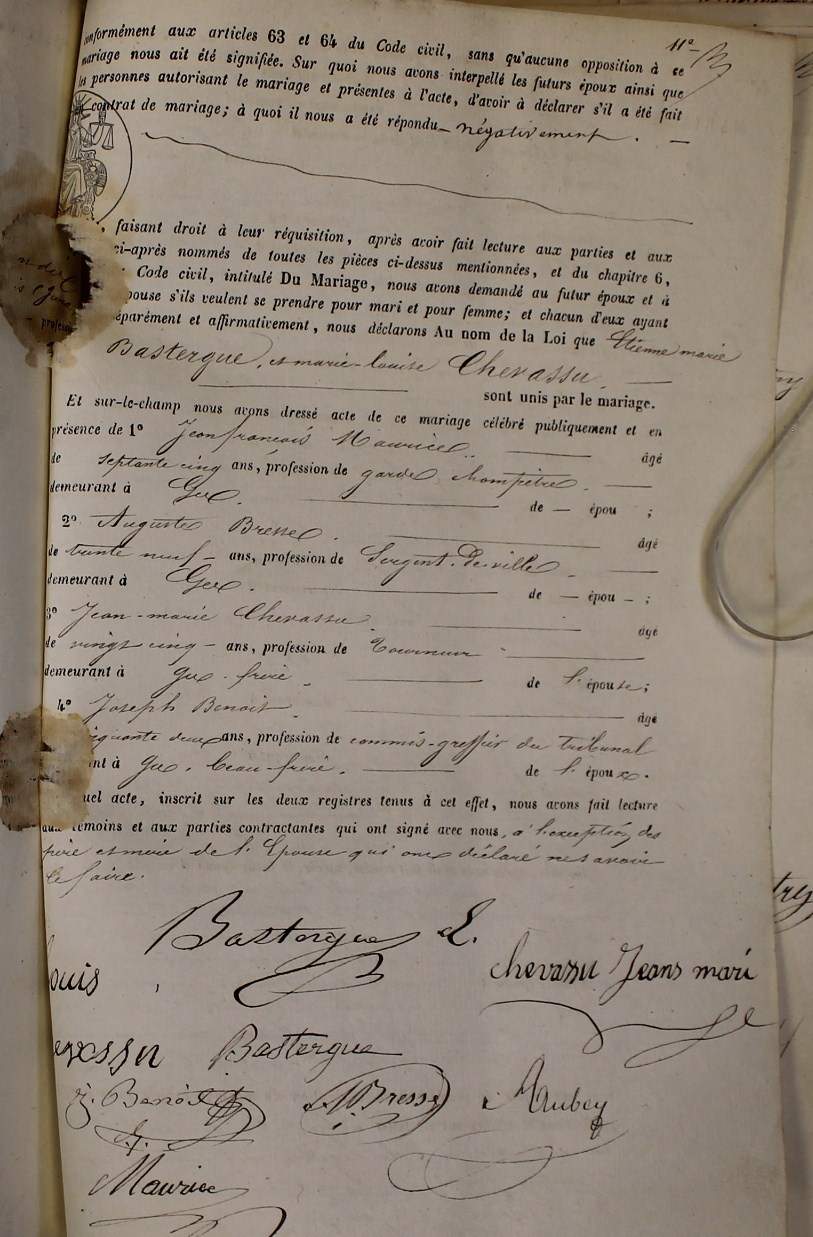 11e
conformément aux articles 63 et 64 du Code civil, sans qu'aucune opposition à ce
mariage nous ait été signifiée. Sur quoi nous avons interpellé les futurs époux ainsi que
les personnes autorisant le mariage et présentes à l'acte, d'avoir à déclarer s'il a été fait
contrat de mariage; à quoi il nous a été répondu négativement.
, faisant droit à leur réquisition, après avoir fait lecture aux parties et aux
ci-après nommés de toutes les pièces ci-dessus mentionnées, et du chapitre 6,
Code civil, intitulé Du Mariage, nous avons demandé au futur époux et à
pouse s'ils veulent se prendre pour mari et pour femme; et chacun d'eux ayant
éparément et affirmativement, nous déclarons Au nom de la Loi que Etienne marie
Bastergue, et marie-louise Chevassu
sont unis par le mariage.
Et sur-le-champ nous avons dressé acte de ce mariage célébré publiquement et en
présence de 1° Jean françois Maurice âgé
de septante cinq ans, profession de garde champêtre
demeurant à Gex. de — épou ;
2° Auguste Bresse. âgé
de trente neuf — ans, profession de Sergent-de-ville
demeurant à Gex. de — épou — ;
3° Jean-marie Chevassu âgé
de vingt cinq — ans, profession de Tourneur
demeurant à Gex. frère de l'épouse;
4° Joseph Benoit. âgé
inquante deux ans, profession de commis-greffier du Tribunal
ant à Gex, beau-frère. de l'époux.
uel acte, inscrit sur les deux registres tenus à cet effet, nous avons fait lecture
aux témoins et aux parties contractantes qui ont signé avec nous, à l'exception des
père et mère de l'Epouse qui ont déclaré ne savoir
le faire.
Bastergue E.
chevassu Jeans mari
ouis
evassu Bastergue
J. Benoit ABresse Aubey
Maurice